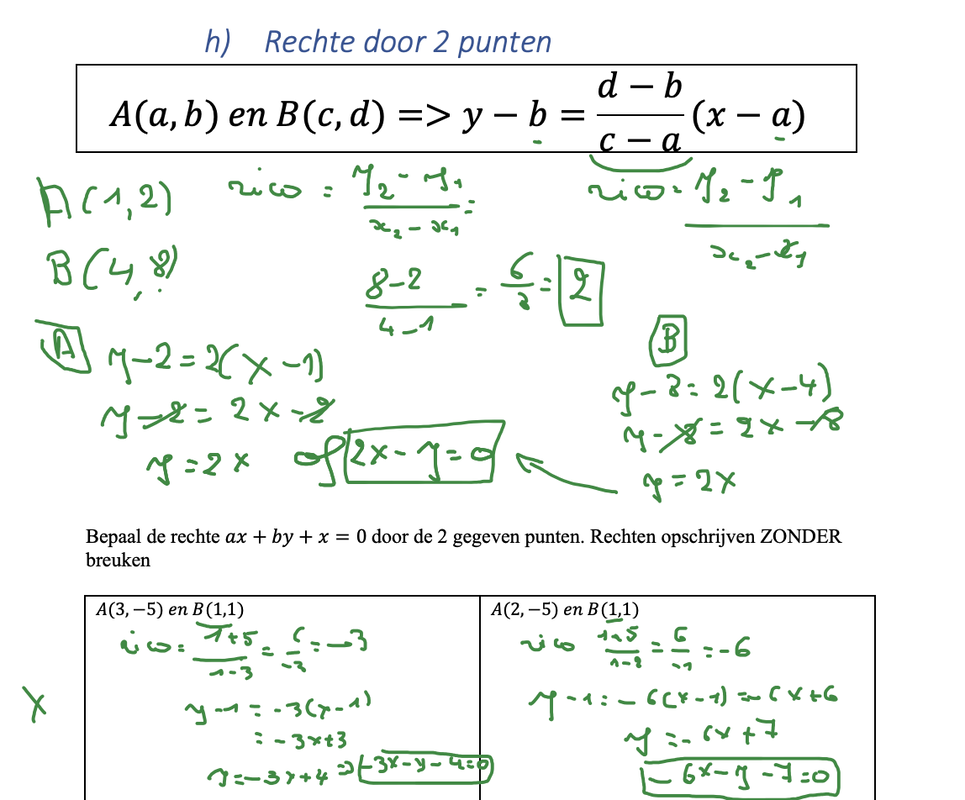 h) Rechte door 2 punten
A(a, b) en B(c, d) => y − b = (d − b)/(c − a) (x − a)
A(1,2) rico = (y₂ - y₁)/(x₂ - x₁) = rico = (y₂ - y₁)/(x₂ - x₁)
B(4,8) (8-2)/(4-1) = 6/3 = 2
A B
y-2 = 2(x-1) y-8 = 2(x-4)
y-2 = 2x-2 y-8 = 2x-8
y=2x of 2x-y=0 y=2x
Bepaal de rechte ax + by + x = 0 door de 2 gegeven punten. Rechten opschrijven ZONDER
breuken
A(3, −5) en B(1,1)
rico = (1+5)/(1-3) = 6/-2 = -3
y-1 = -3(x-1)
= -3x+3
y=-3x+4 => -3x-y-4=0
A(2, −5) en B(1,1)
rico (1+5)/(1-2) = 6/-1 = -6
y-1 = -6(x-1) = -6x+6
y = -6x+7
-6x-y-7=0
x